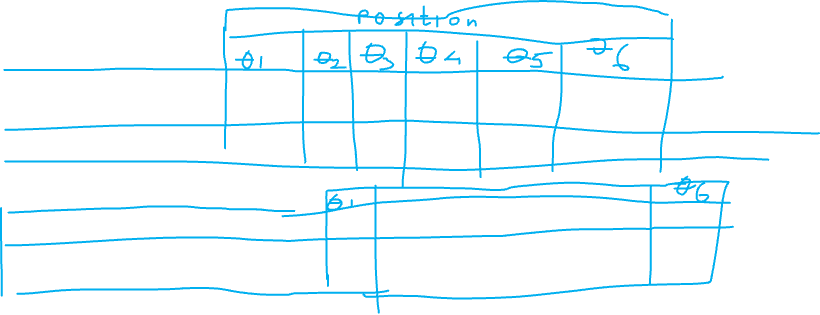 Position
θ1 θ2 θ3 θ4 θ5 θ6
θ1 θ6